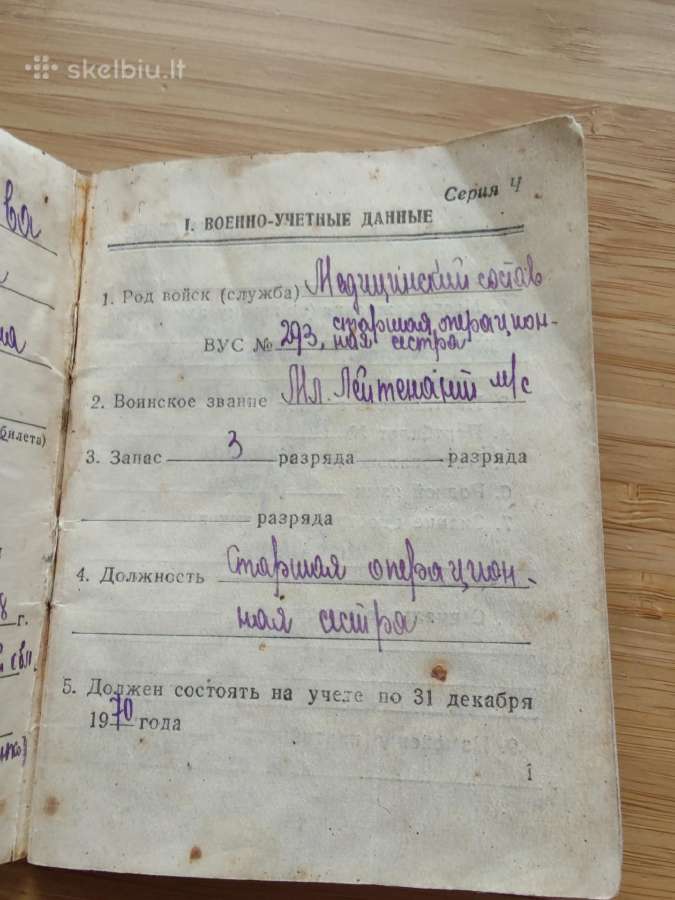 skelbiu.lt
ва
а
на
билета)
8 г.
Серия Ч
I. ВОЕННО-УЧЕТНЫЕ ДАННЫЕ
1. Род войск (служба) Медицинский состав
ВУС № 293, старшая операцион-
ная сестра
2. Воинское звание Мл. Лейтенант м/с
3. Запас 3 разряда разряда
разряда
4. Должность Старшая операцион-
ная сестра
5. Должен состоять на учете по 31 декабря
1970 года
1